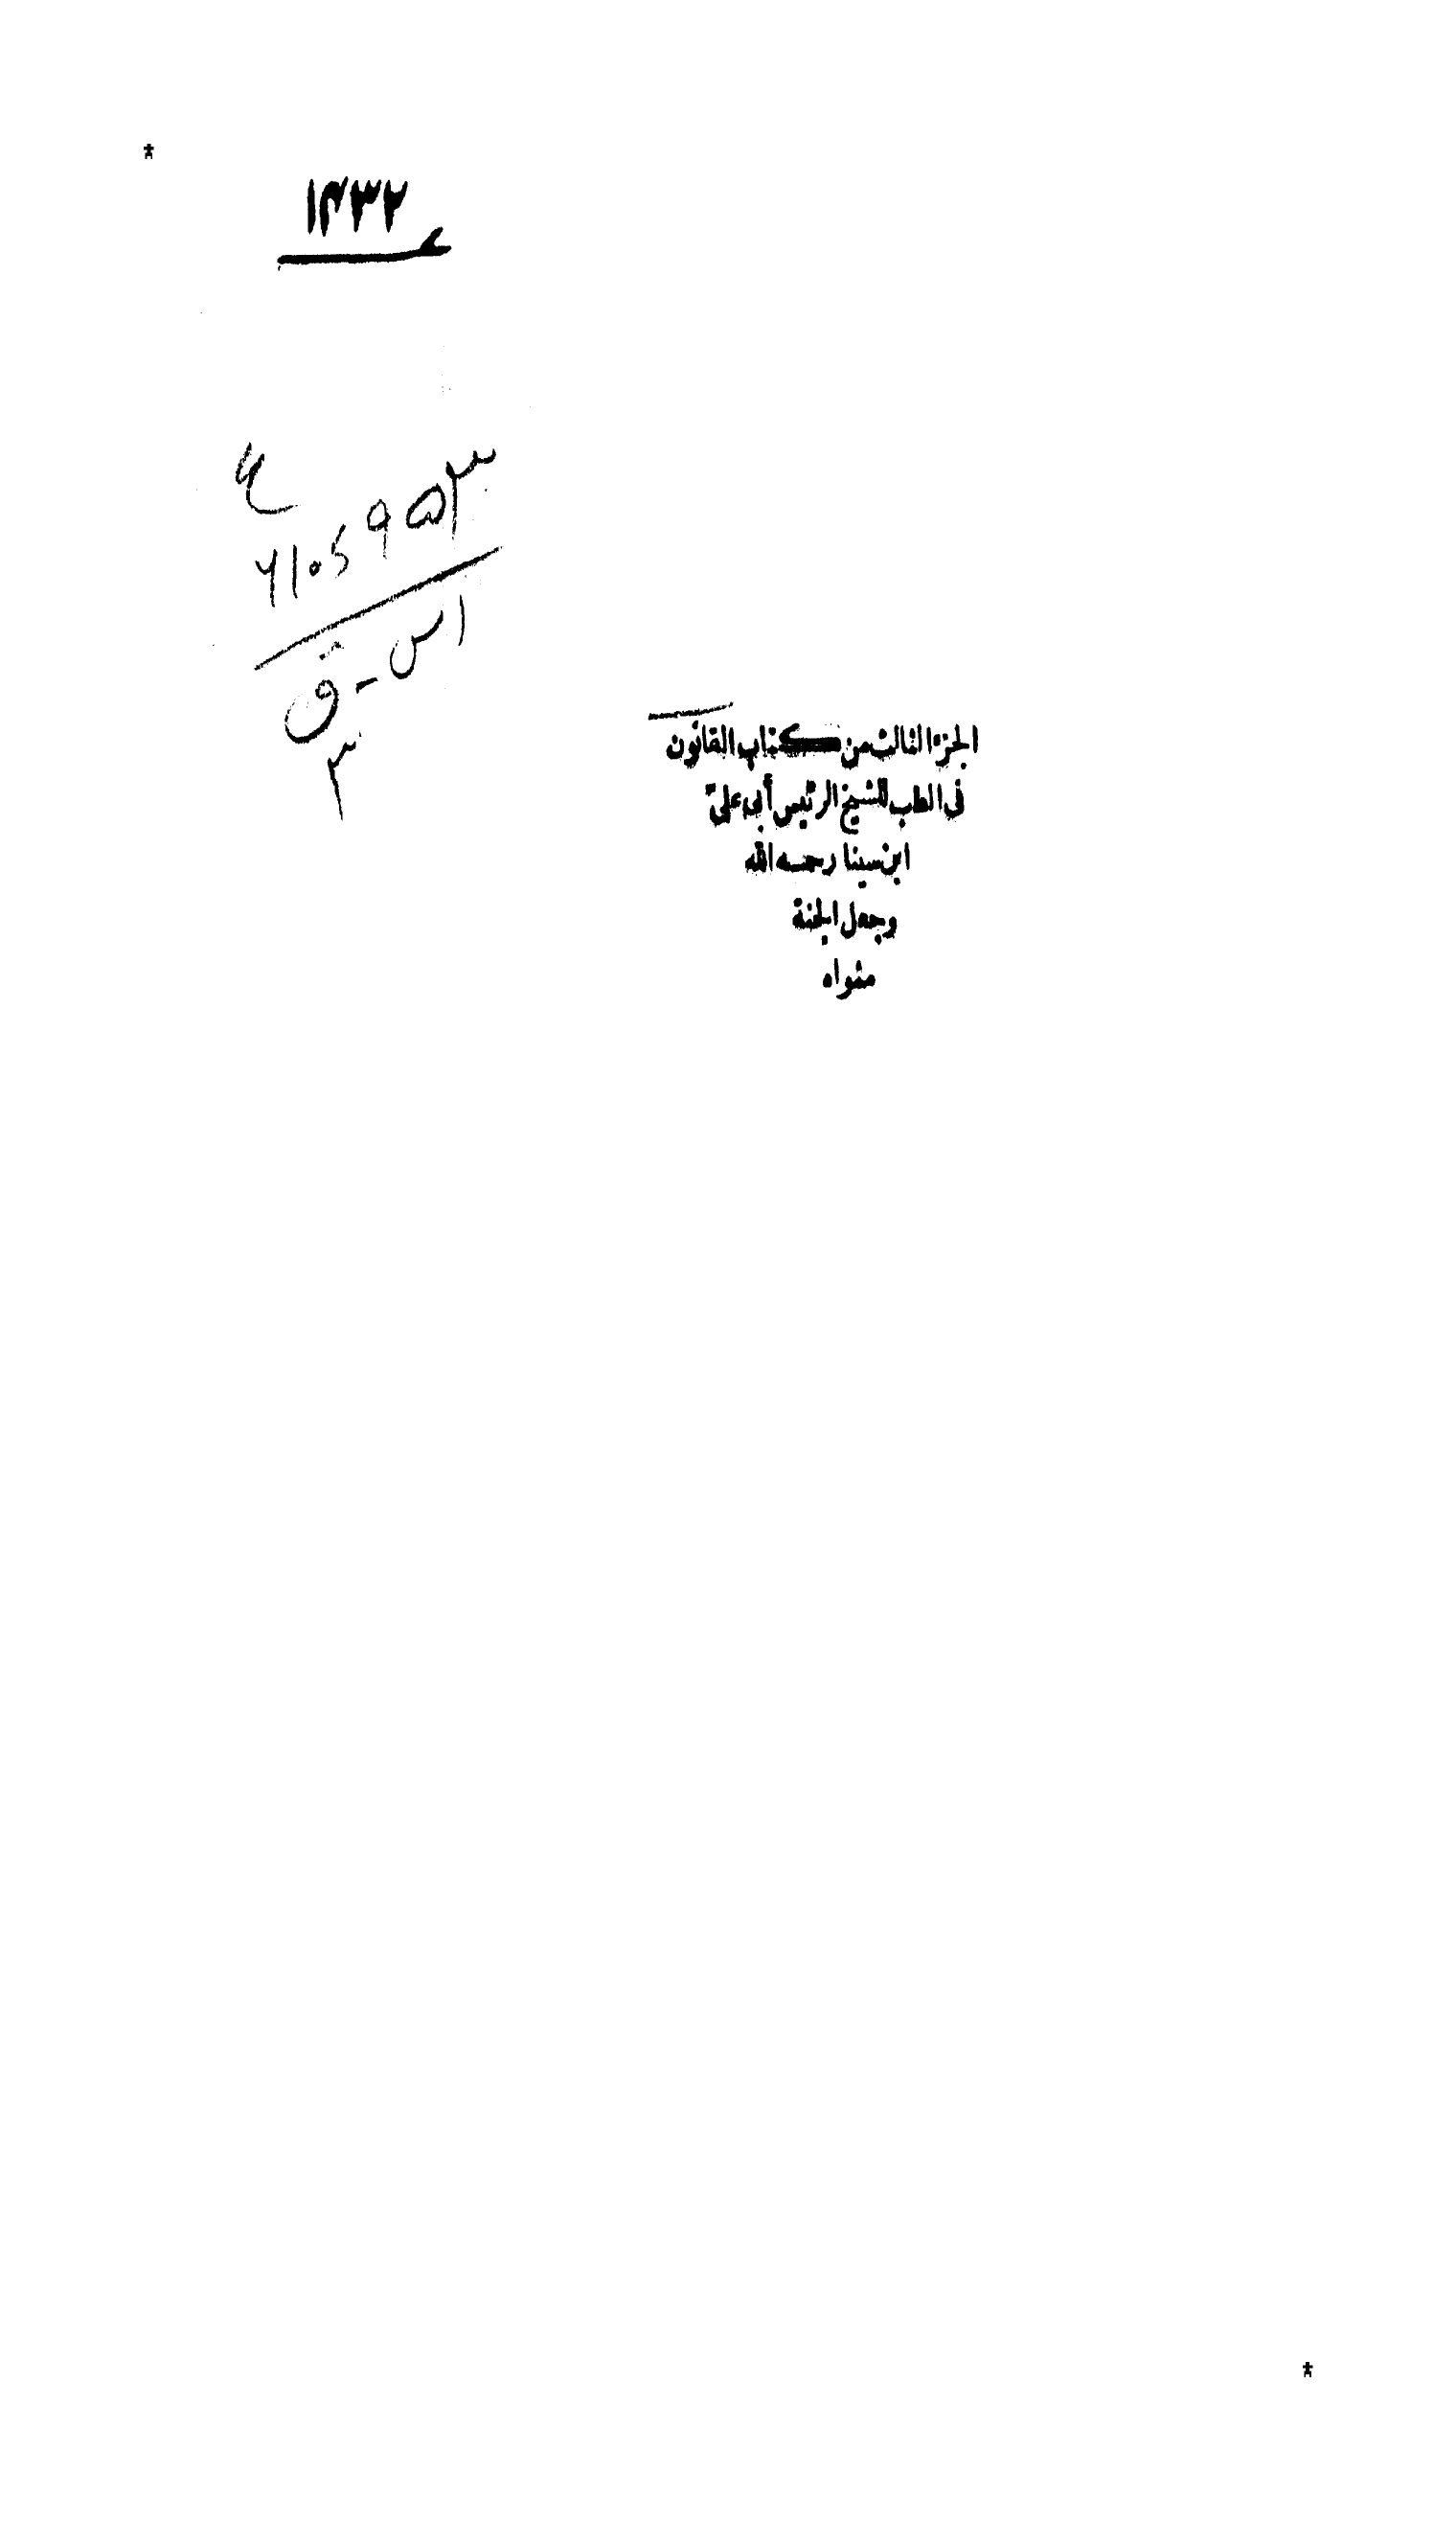 ١٣٣٢
ع
٦١٠٫٩٥٣
اس - ق
٣
الجزء الثالث من كتاب القانون
فى الطب للشيخ الرئيس أبى على
ابن سينا رحمه الله
وجعل الجنة
مثواه